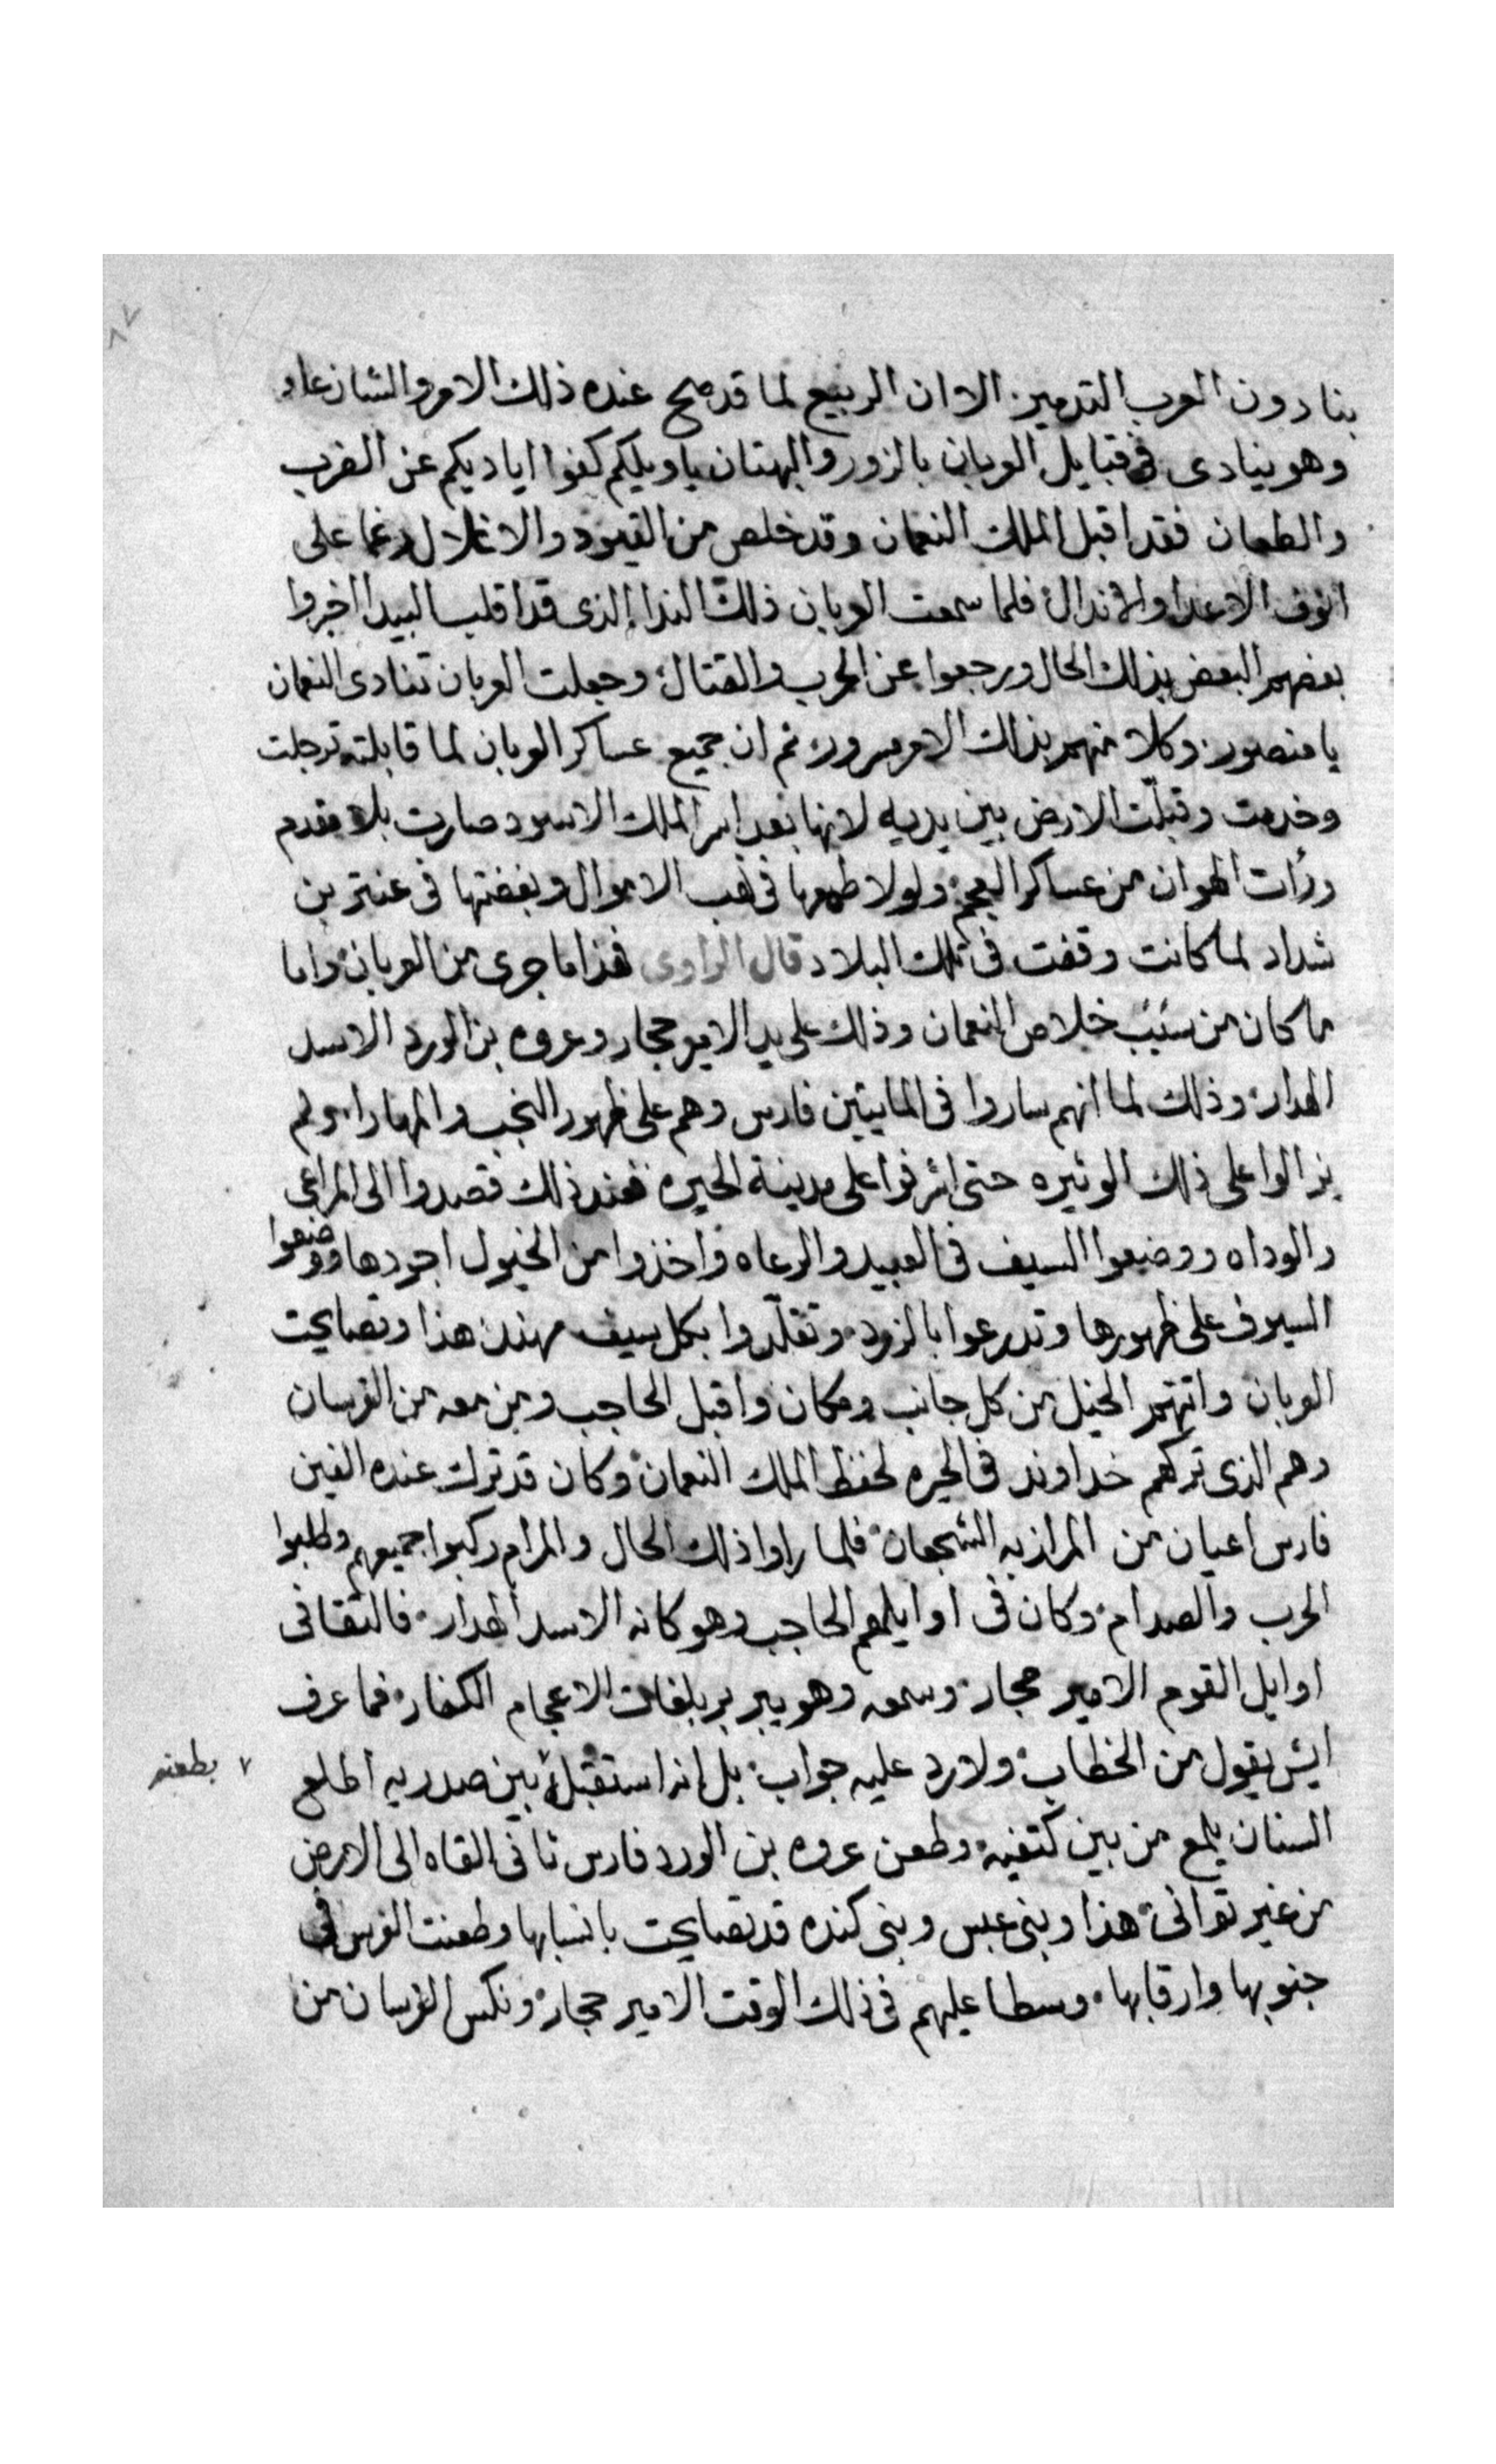 ٨٧
بنادون العرب التدمير. الا ان الربيع لما قد صح عنده ذلك الامر والشان عاد
وهو ينادى فى قبايل العربان بالزور والبهتان يا ويلكم كفوا اياديكم عن الضرب
والطعان فقد اقبل الملك النعمان وقد خلص من القيود والاغلال رغما على
انوف الاعدا والاندال فلما سمعت العربان ذلك الندا الذى قد اقلب البيدا اخبروا
بعضهم البعض بذلك الحال ورجعوا عن الحرب والقتال وجعلت العربان تنادى النعمان
يا منصور وكلا منهم بذلك الامر مسرور ثم ان جميع عساكر العربان لما قابلته ترجلت
وخدمت وقبلت الارض بين يديه لانها بعد اسر الملك الاسود صارت بلا مقدم
ورأت الهوان من عساكر العجم ولولا طمعها فى نهب الاموال وبغضتها فى عنتر بن
شداد لما كانت وقفت فى تلك البلاد قال الراوى فهذا ما جرى من العربان واما
ما كان من سبب خلاص النعمان وذلك على يد الامير حجار وعروه بن الورد الاسد
الهدار وذلك لما انهم ساروا فى المايتين فارس وهم على ظهور النجب والمهارا ولم
يزالوا على ذلك الوتيره حتى اشرفوا على مدينة الحيره فعند ذلك قصدوا الى المراعى
والوداه ووضعوا السيف فى العبيد والرعاه واخذوا من الخيول اجودها ووضعوا
السيوف على ظهورها وتدرعوا بالزرد وتقلدوا بكل سيف مهند هذا وتصايحت
العربان واتتهم الخيل من كل جانب ومكان واقبل الحاجب ومن معه من الفرسان
وهم الذى تركهم خداوند فى الحيره لحفظ الملك النعمان وكان قد ترك عنده الفين
فارس اعيان من المرازبه الشجعان فلما راوا ذلك الحال والمرام ركبوا جميعهم وطلبوا
الحرب والصدام وكان فى اوايلهم الحاجب وهو كانه الاسد الهدار فالتقا فى
اوايل القوم الامير حجار وسمعه وهو يبربر بلغات الاعجام الكفار فما عرف
ايش يقول من الخطاب ولا رد عليه جواب بل انه استقبله ٧ بين صدريه اطلع
٧ بطعنه
السنان يلمع من بين كتفيه وطعن عروه بن الورد فارس ثانى القاه الى الارض
من غير توانى هذا وبنى عبس وبنى كنده قد تصايحت بانسابها وطعنت الفرس فى
جنوبها وارقابها وسطا عليهم فى ذلك الوقت الامير حجار ونكس الفرسان من